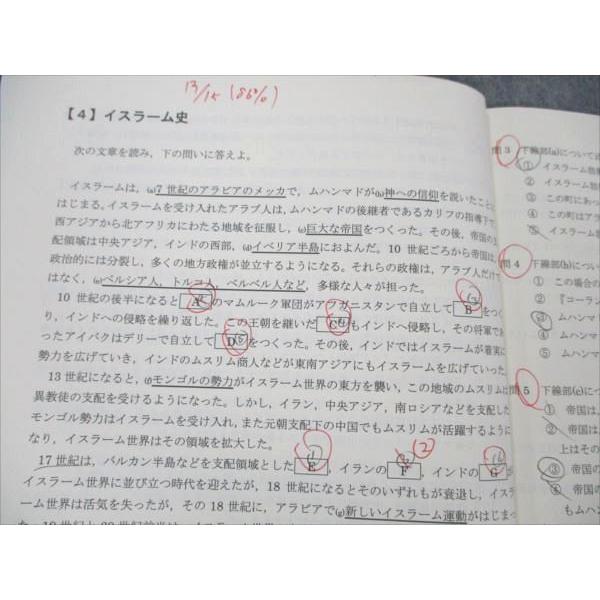 13/15 (86%)
【4】イスラーム史
次の文章を読み，下の問いに答えよ。
イスラームは，(a)7世紀のアラビアのメッカで，ムハンマドが(b)神への信仰を説いたことに
はじまる。イスラームを受け入れたアラブ人は，ムハンマドの後継者であるカリフの指導下で
西アジアから北アフリカにわたる地域を征服し，(c)巨大な帝国をつくった。その後，帝国の支
配領域は中央アジア，インドの西部，(d)イベリア半島におよんだ。10世紀ごろから帝国は
政治的には分裂し，多くの地方政権が並立するようになる。それらの政権は，アラブ人だけで
はなく，(e)ペルシア人，トルコ人，ベルベル人など，多様な人々が担った。
10世紀の後半になると A のマムルーク軍団がアフガニスタンで自立して B をつく
り，インドへの侵略を繰り返した。この王朝を継いだ C もインドへ侵略し，その将軍であ
ったアイバクはデリーで自立して D をつくった。その後，インドではイスラームが着実に
勢力を広げていき，インドのムスリム商人などが東南アジアにもイスラームを広げていった
13世紀になると，(f)モンゴルの勢力がイスラーム世界の東方を襲い，この地域のムスリムは
異教徒の支配を受けるようになった。しかし，イラン，中央アジア，南ロシアなどを支配した
モンゴル勢力はイスラームを受け入れ，また元朝支配下の中国でもムスリムが活躍するように
なり，イスラーム世界はその領域を拡大した。
17世紀は，バルカン半島などを支配領域とした E ，イランの F ，インドの G が
イスラーム世界に並び立つ時代を迎えたが，18世紀になるとそのいずれもが衰退し，イスラ
ーム世界は活気を失ったが，その18世紀に，アラビアで(g)新しいイスラーム運動がはじまっ
(2)
問3 下線部(a)について
① イスラーム
② イスラーム
③ この町にあっ
④ この町はア
⑤ イスラーム
問4 下線部(b)につい
① この場合の
② 『コーラン
③ ムハンマ
④ ムハンマ
⑤ ムハンマ
問5 下線部(c)に
① 帝国は，
② 帝国は，
上はその
③ 帝国の
④ 帝国の
もムハン